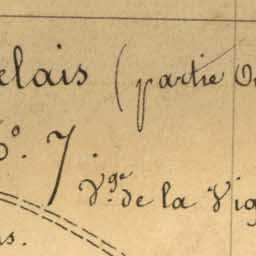 elais (partie O
6º. 7.
Vge. de la Vig
ns.